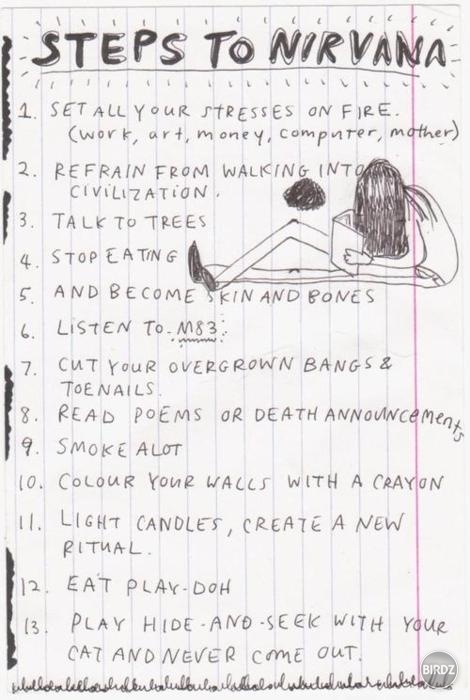 STEPS TO NIRVANA
1. SET ALL YOUR STRESSES ON FIRE.
(work, art, money, computer, mother)
2. REFRAIN FROM WALKING INTO
CIVILIZATION.
3. TALK TO TREES
4. STOP EATING
5. AND BECOME SKIN AND BONES
6. LISTEN TO M83.
7. CUT YOUR OVERGROWN BANGS &
TOENAILS.
8. READ POEMS OR DEATH ANNOUNCEMENTS
9. SMOKE ALOT
10. COLOUR YOUR WALLS WITH A CRAYON
11. LIGHT CANDLES, CREATE A NEW
RITUAL.
12. EAT PLAY-DOH
13. PLAY HIDE-AND-SEEK WITH YOUR
CAT AND NEVER COME OUT.
BIRDZ